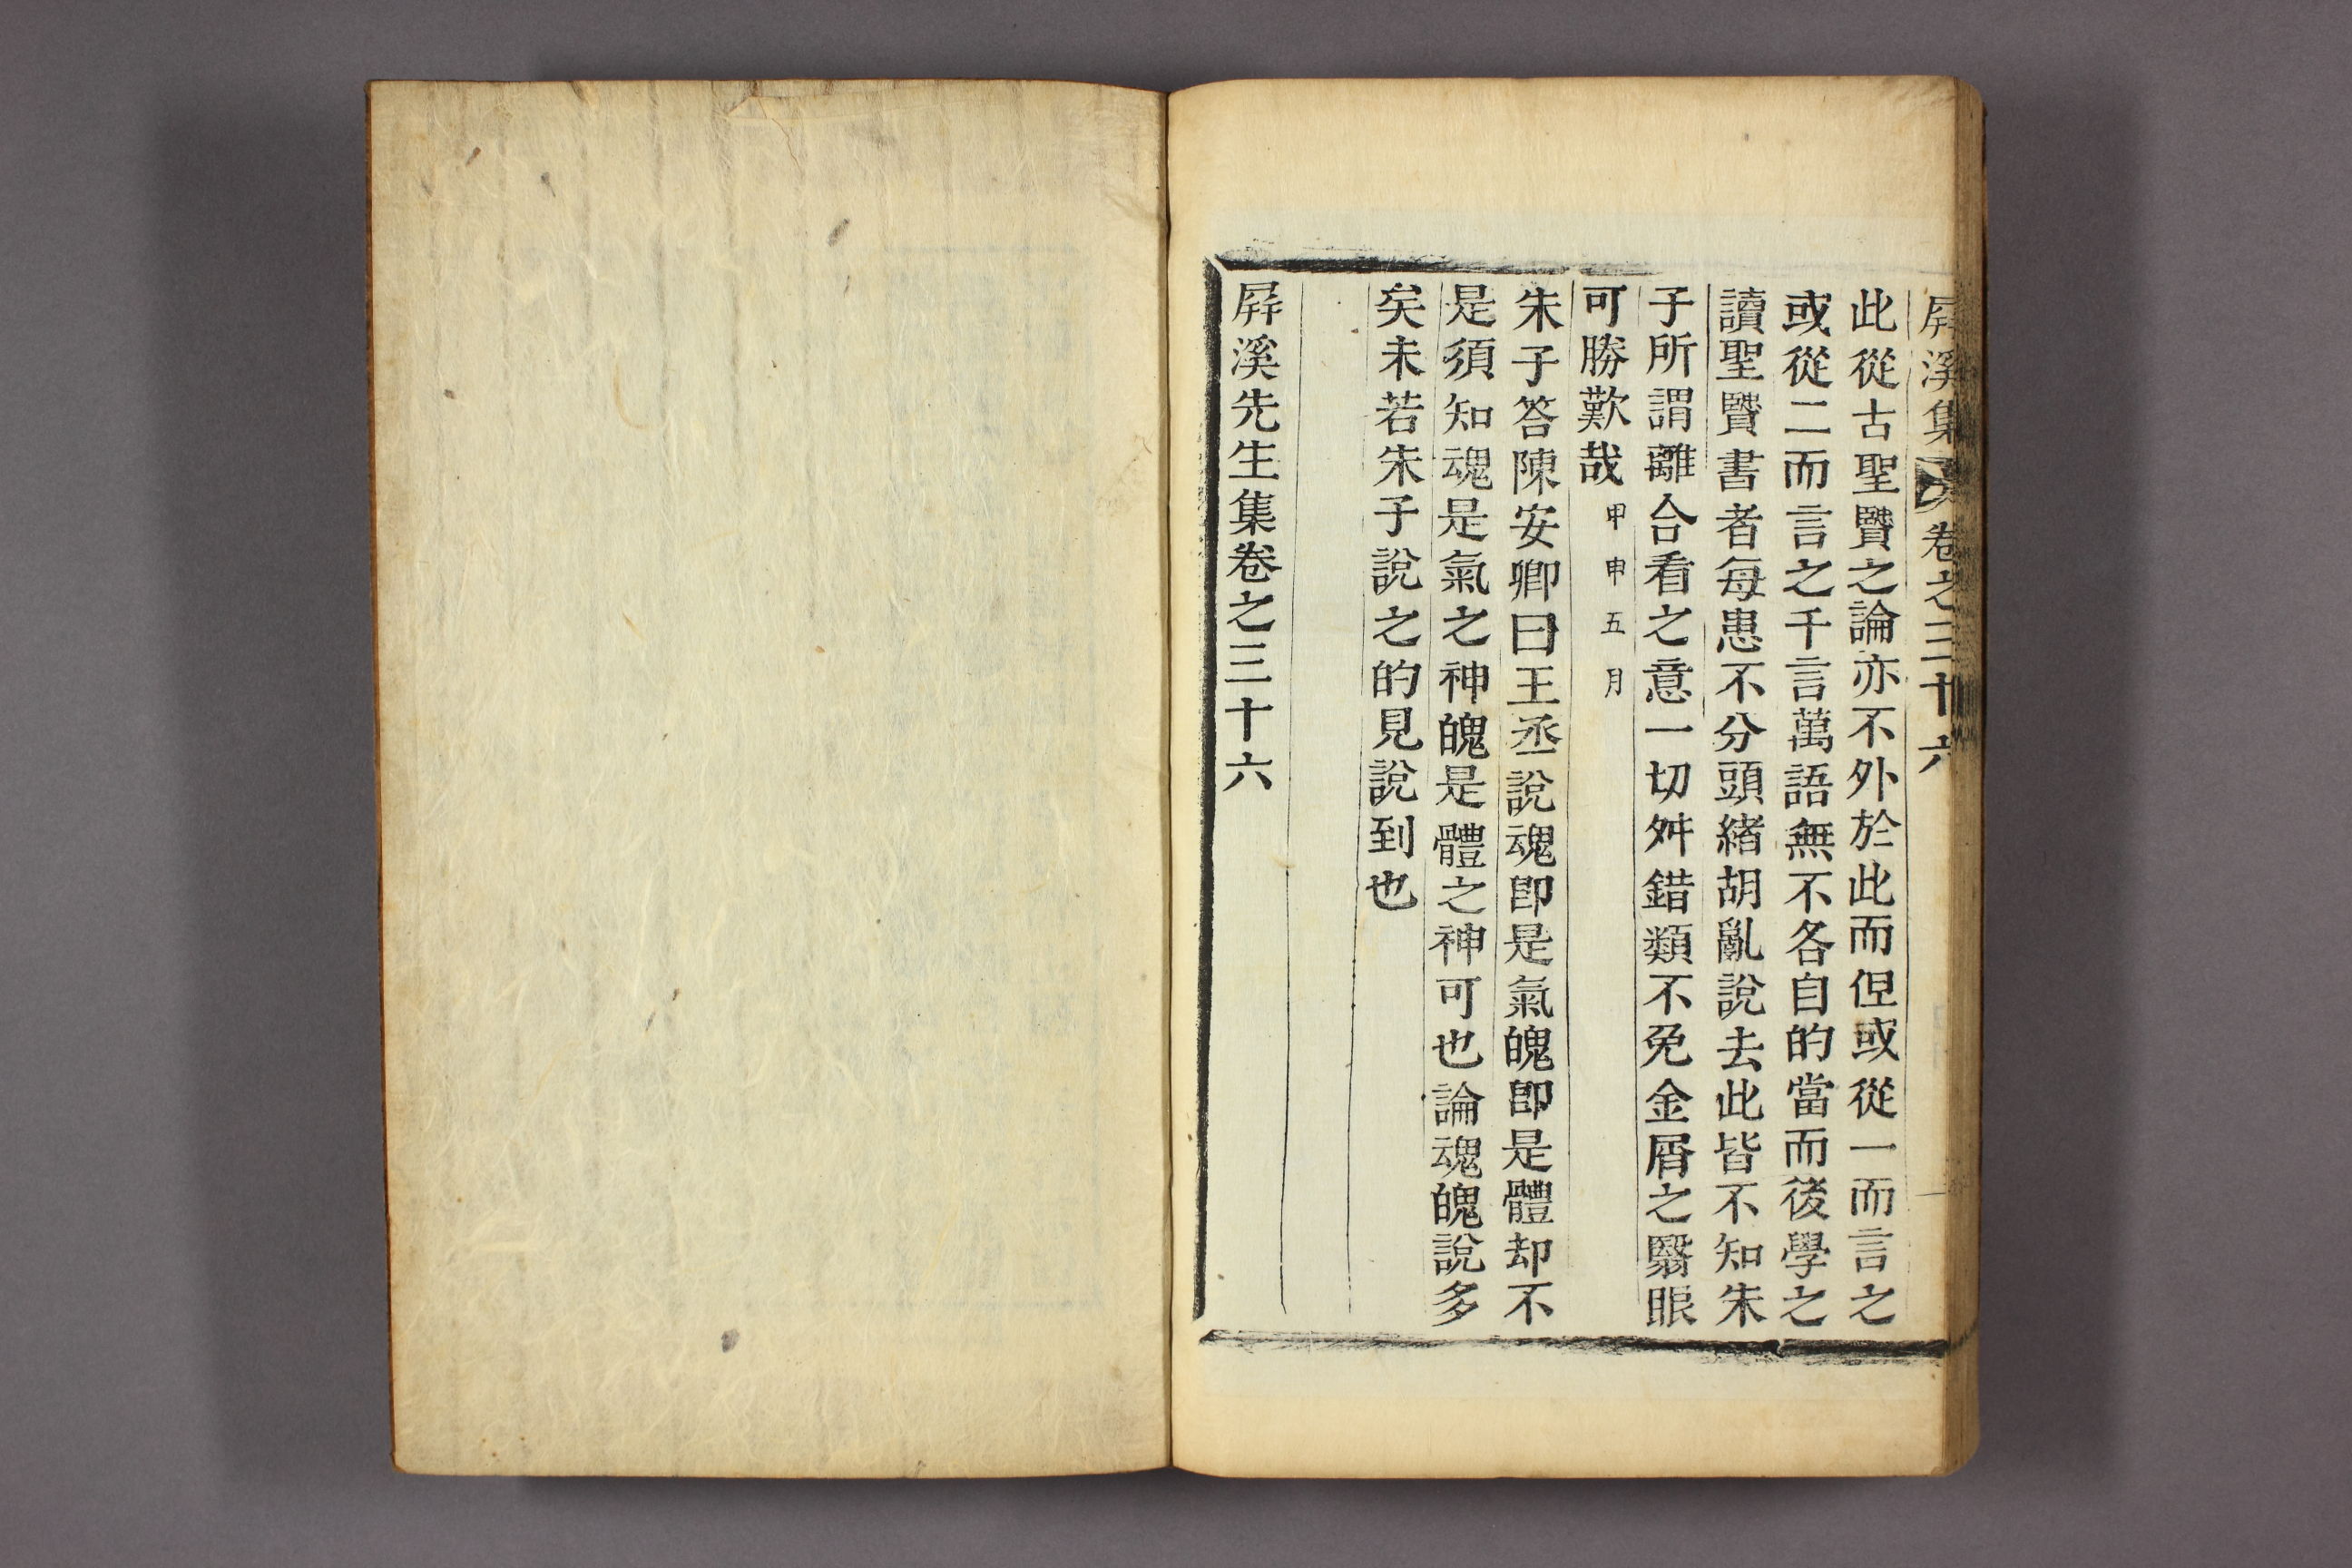 屛溪集 卷之三十六
此從古聖賢之論亦不外於此而但或從一而言之
或從二而言之千言萬語無不各自的當而後學之
讀聖賢書者每患不分頭緖胡亂說去此皆不知朱
子所謂離合看之意一切舛錯類不免金屑之翳眼
可勝歎哉 甲申五月
朱子答陳安卿曰王丞說魂卽是氣魄卽是體却不
是須知魂是氣之神魄是體之神可也論魂魄說多
矣未若朱子說之的見說到也
屛溪先生集卷之三十六